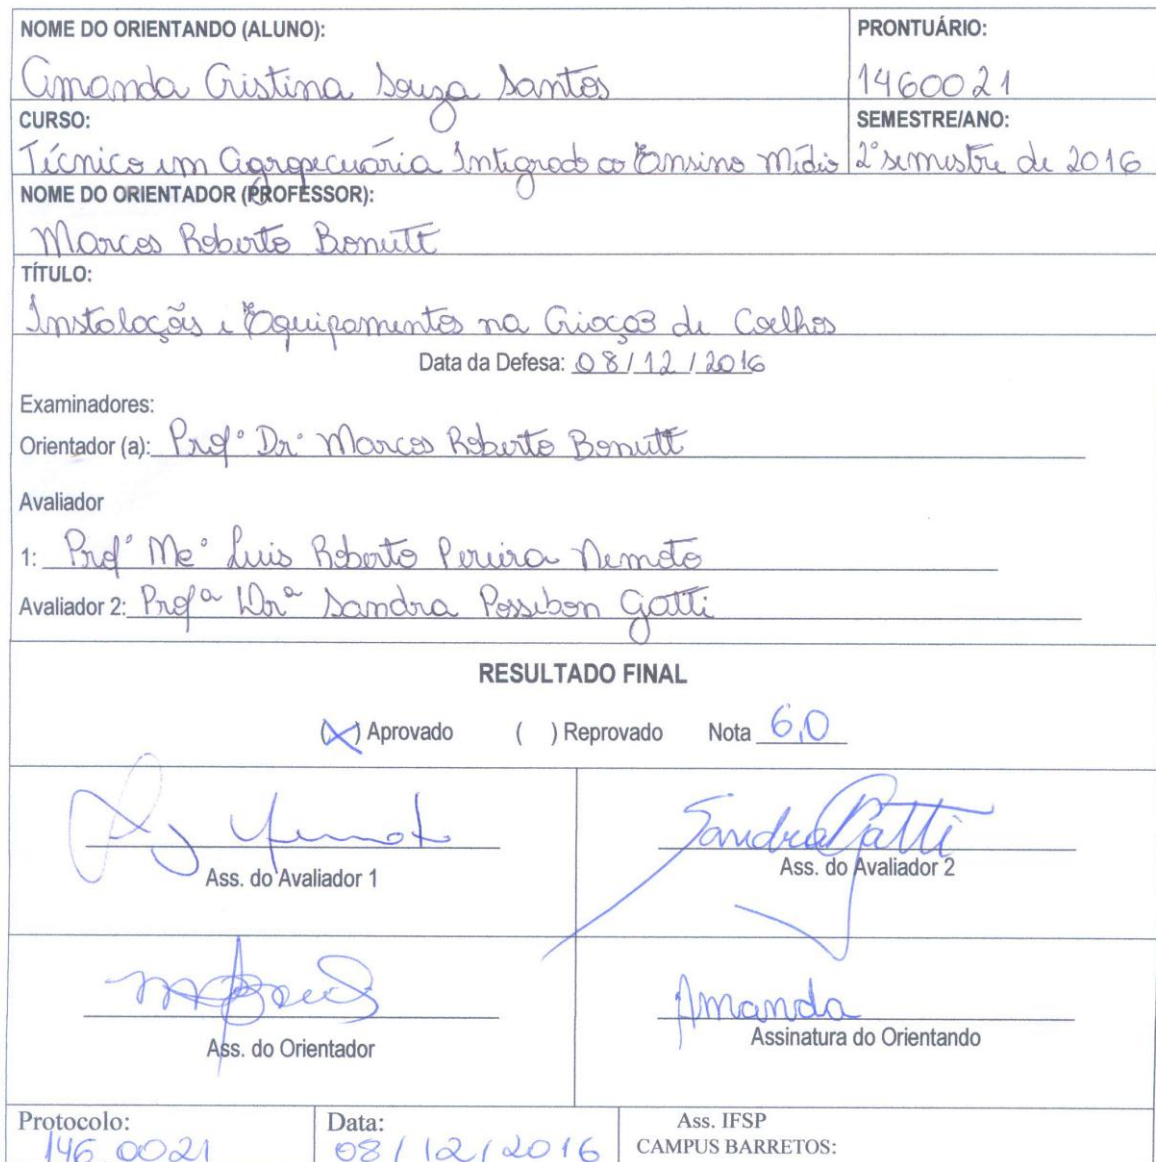 NOME DO ORIENTANDO (ALUNO): PRONTUÁRIO:
Amanda Cristina Souza Santos 1460021
CURSO: SEMESTRE/ANO:
Técnico em Agropecuária Integrado ao Ensino Médio 2º semestre de 2016
NOME DO ORIENTADOR (PROFESSOR):
Marcos Roberto Bonutt
TÍTULO:
Instalações e Equipamentos na Criação de Coelhos
Data da Defesa: 08/12/2016
Examinadores:
Orientador (a): Profº Drº Marcos Roberto Bonutt
Avaliador
1: Profº Meº Luis Roberto Pereira Nemoto
Avaliador 2: Profª Drª Sandra Possebon Gatti
RESULTADO FINAL
(X) Aprovado ( ) Reprovado Nota 6,0
Sandra Gatti
Ass. do Avaliador 1 Ass. do Avaliador 2
Amanda
Ass. do Orientador Assinatura do Orientando
Protocolo: Data: Ass. IFSP
146 0021 08/12/2016 CAMPUS BARRETOS: